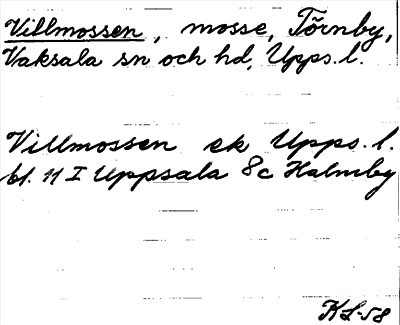 Villmossen, mosse, Törnby,
Vaksala sn och hd, Upps. l.
Villmossen ek Upps. l.
bl. 11 I Uppsala 8c Halmby
KL-58